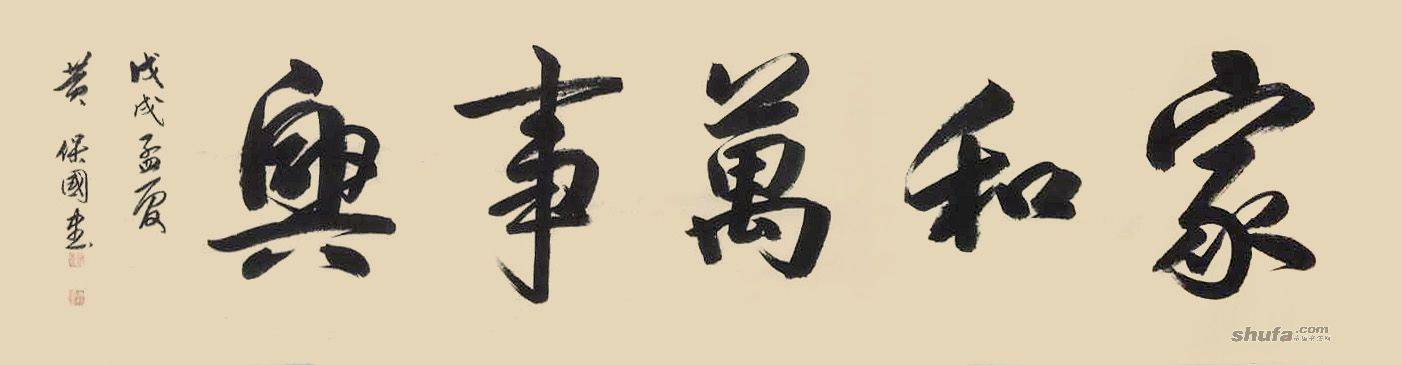 家和萬事興
戊戌孟夏
黄保國書
shufa.com